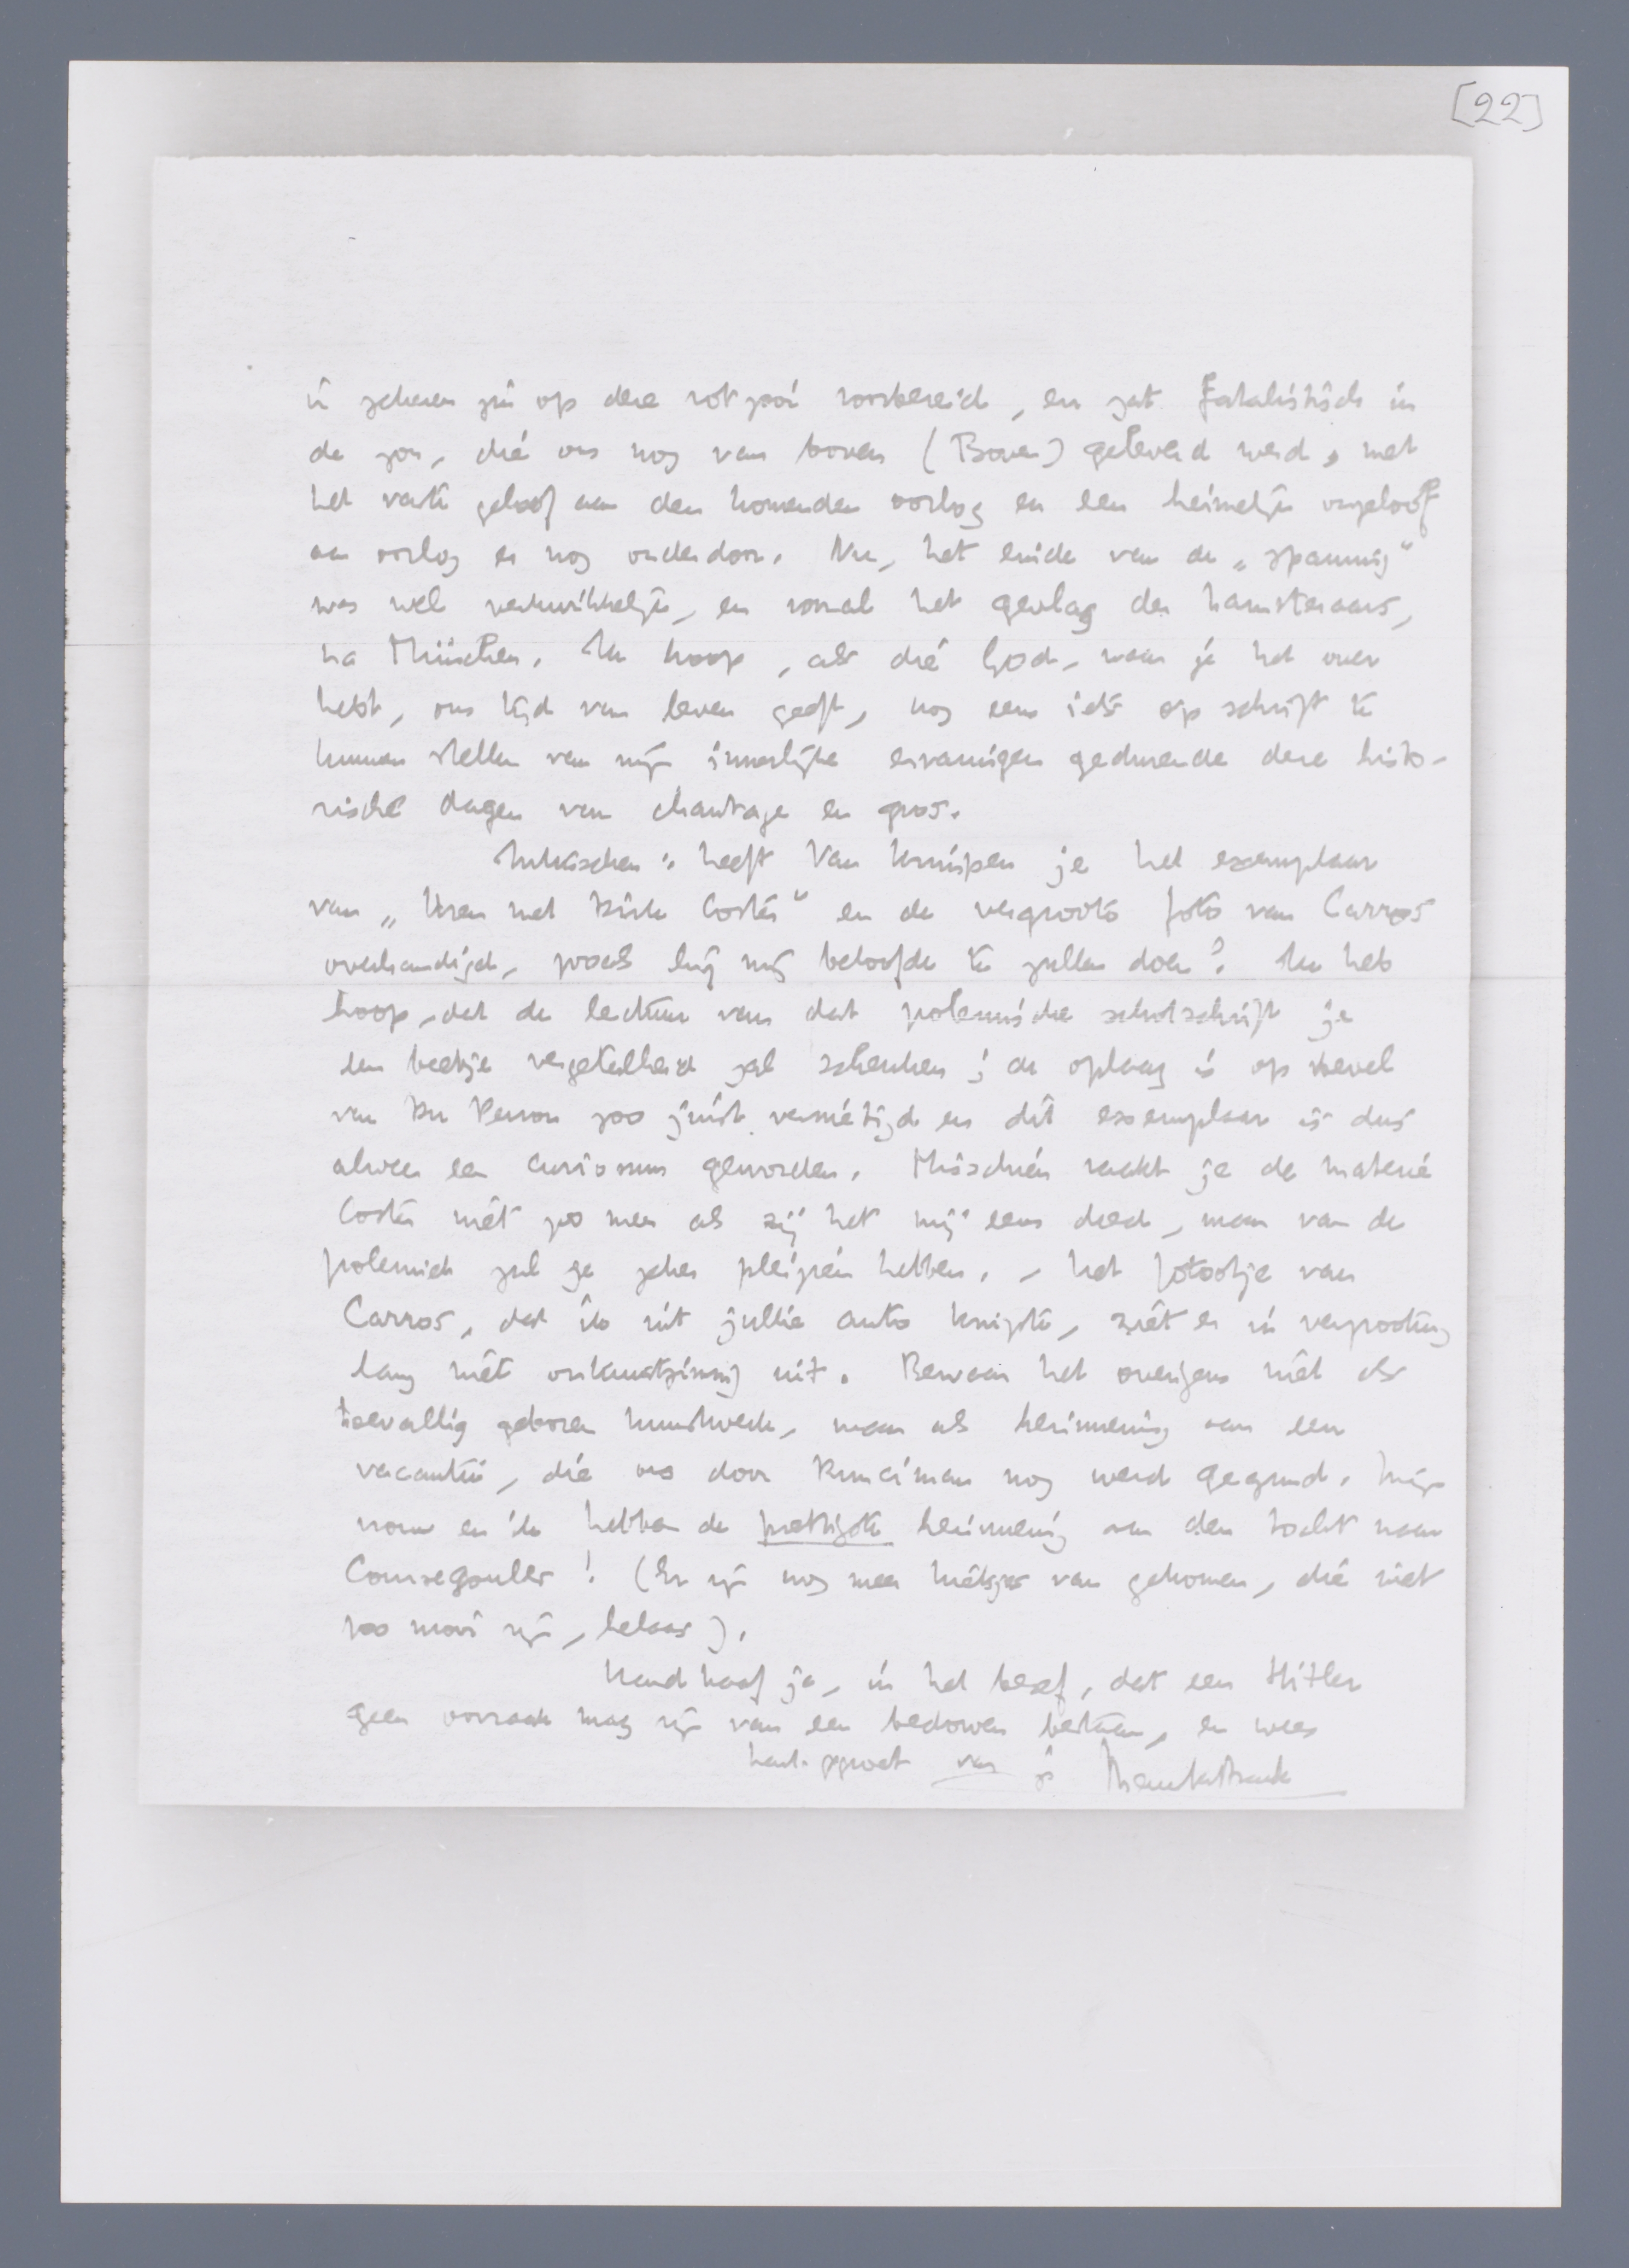 [22]
in zekeren zin op deze rotzooi voorbereid, en zat fatalistisch in
de zon, die ons nog van boven (Boven) geleverd werd, met
het vaste geloof aan den komenden oorlog en een heimelijk ongeloof
aan oorlog er nog onderdoor. Nu, het einde van de „spanning"
was wel verkwikkelijk, en vooral het geslag der hamsteraars,
na München. Ik hoop, als die God, waar je het over
hebt, ons tijd van leven geeft, nog eens iets op schrift te
kunnen stellen van mijn innerlijke ervaringen gedurende deze histo-
rische dagen van chantage en gros.
Intusschen: heeft Van Kruipen je het exemplaar
van „Uren met Dirk Coster" en de vergroote foto van Carros
overhandigd, zooals hij mij beloofde te zullen doen? Ik heb
hoop, dat de lectuur van dat polemische schotschrift je
een beetje vergetelheid zal schenken; de oplaag is op bevel
van Du Perron zoo juist vernietigd en dit exemplaar is dus
alweer een curiosum geworden. Misschien raakt je de materie
Coster niet zoo meer als zij het mij eens deed, maar van de
polemiek zul je zeker pleizier hebben. – Het fotootje van
Carros, dat ik uit jullie auto knipte, ziet er in vergrooting
lang niet onkunstzinnig uit. Bewaar het overigens niet als
toevallig geboren kunstwerk, maar als herinnering aan een
vacantie, die ons door Runciman nog werd gegund. Mijn
vrouw en ik hebben de prettigste herinnering aan den tocht naar
Coursegoules! (Er zijn nog meer kiekjes van gekomen, die niet
zoo mooi zijn, helaas).
Handhaaf je, in het besef, dat een Hitler
geen oorzaak mag zijn van een bedorven bestaan, en wees
hart. gegroet van je Menno ter Braak